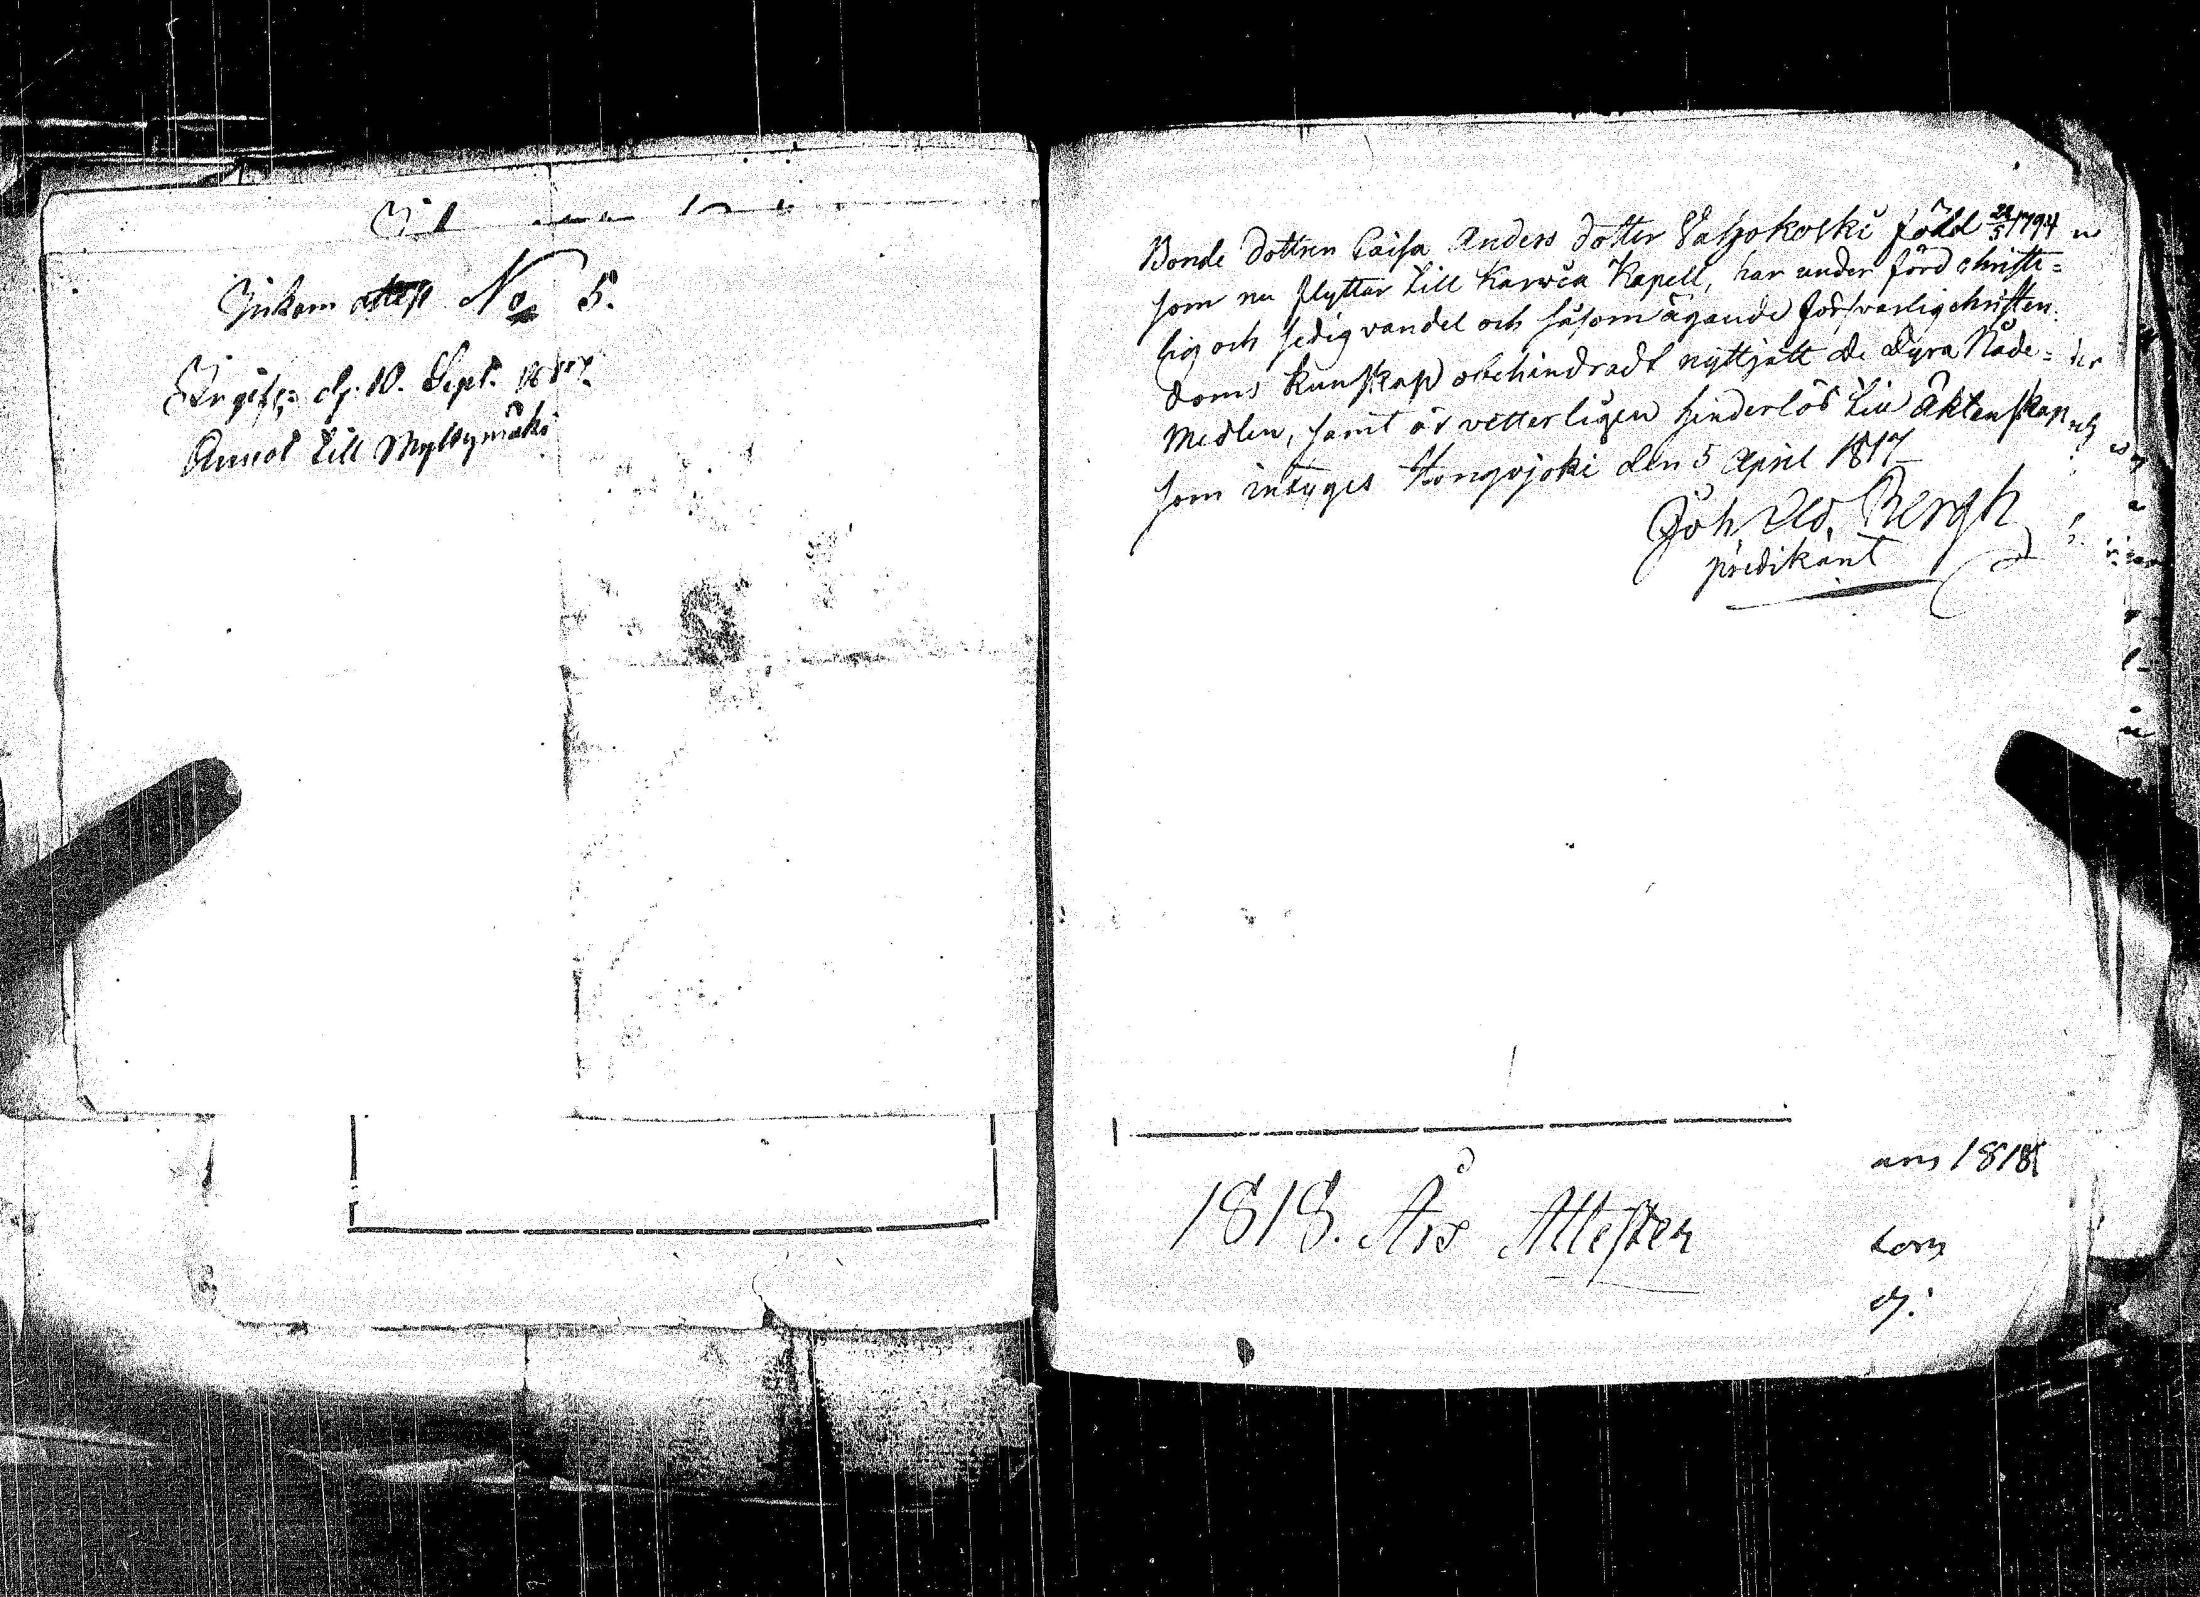 Inkom No 5.
d. 10. Sept. 1817.
till Myllymäki
Bonde dottren Caisa Anders dotter Valjokoski född 22/5 1794
som nu flyttar till Karvia Kapell, har under förd christe=
lig och sedig vandel och såsom ägande försvarlig christen=
doms kunskap obehindradt nyttjatt de dyra Nåde=
medlen, samt är vetterligen hinderlös till Äktenskap
som intyges Hongojoki den 5 April 1817
Joh Bergh
predikant
1818
1818. Års Attester